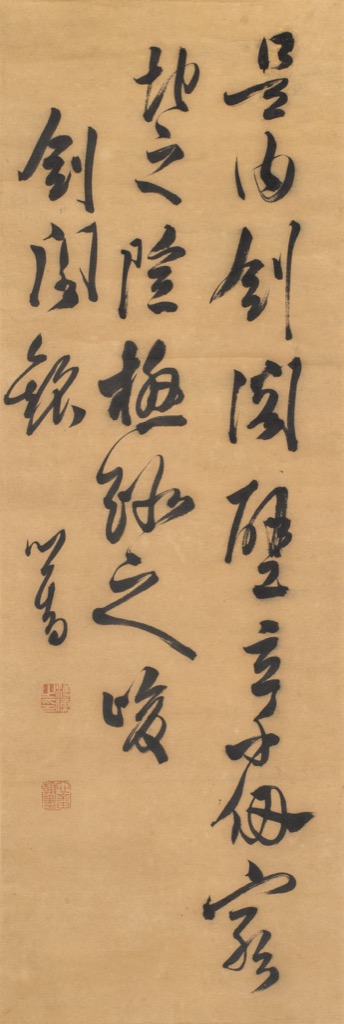 是曰劍閣壁立千仞窮
地之險極路之峻
劍閣銘
心畬